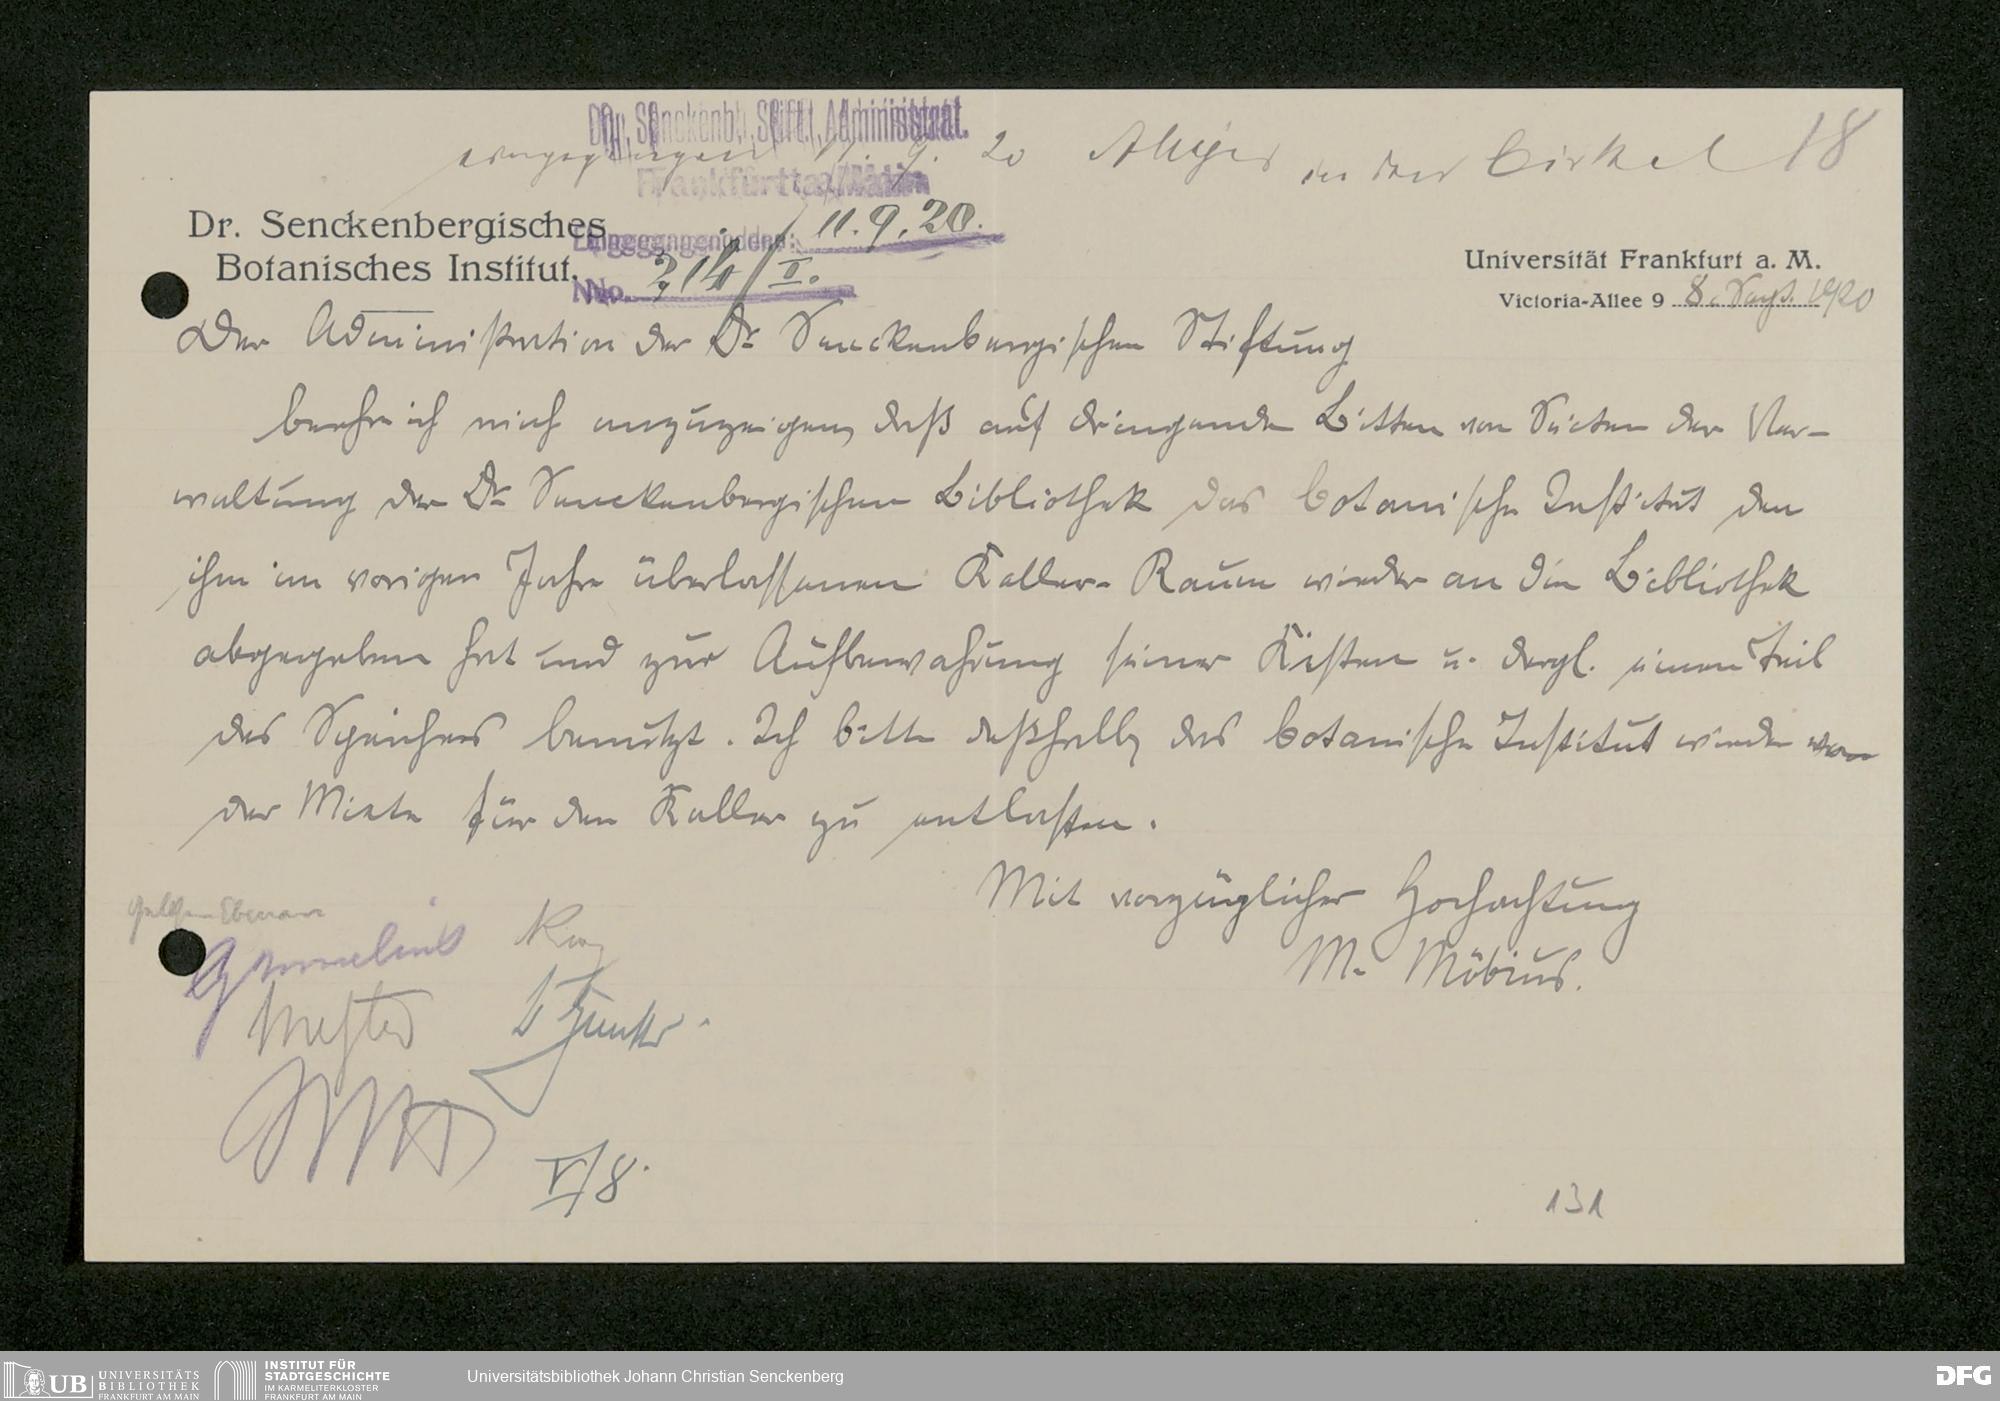 Dr. Senckenb. Stift. Administrat.
eingegangen 11. 9. 20 in den Cirkel 18
Frankfurt a/Main
Dr. Senckenbergisches
Botanisches Institut.
Eingegangen den: 11. 9. 20.
No. 214/II.
Universität Frankfurt a. M.
Victoria-Allee 9 8. Sept. 1920
Der Administration der Dr. Senckenbergischen Stiftung
beehre ich mich anzuzeigen, daß auf dringende Bitten von Seiten der Ver-
waltung der Dr. Senckenbergischen Bibliothek das botanische Institut den
ihm im vorigen Jahre überlassenen Keller-Raum wieder an die Bibliothek
abgegeben hat und zur Aufbewahrung seiner Kisten u. dergl. einen Teil
des Speichers benutzt. Ich bitte deßhalb, das botanische Institut wieder von
der Miete für den Keller zu entlasten.
Mit vorzüglicher Hochachtung
M. Möbius.
gelesen Ebenau
V/8.
131
UB UNIVERSITÄTS
BIBLIOTHEK
FRANKFURT AM MAIN
INSTITUT FÜR
STADTGESCHICHTE
IM KARMELITERKLOSTER
FRANKFURT AM MAIN
Universitätsbibliothek Johann Christian Senckenberg
DFG